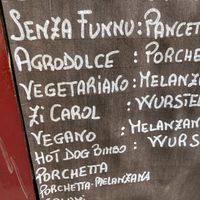 SENZA FUNNU : PANCET
AGRODOLCE : PORCHE
VEGETARIANO : MELANZA
ZI CAROL : WURSTE
VEGANO : MELANZAN
HOT DOG BIMBO : WURS
PORCHETTA
PORCHETTA-MELANZANA